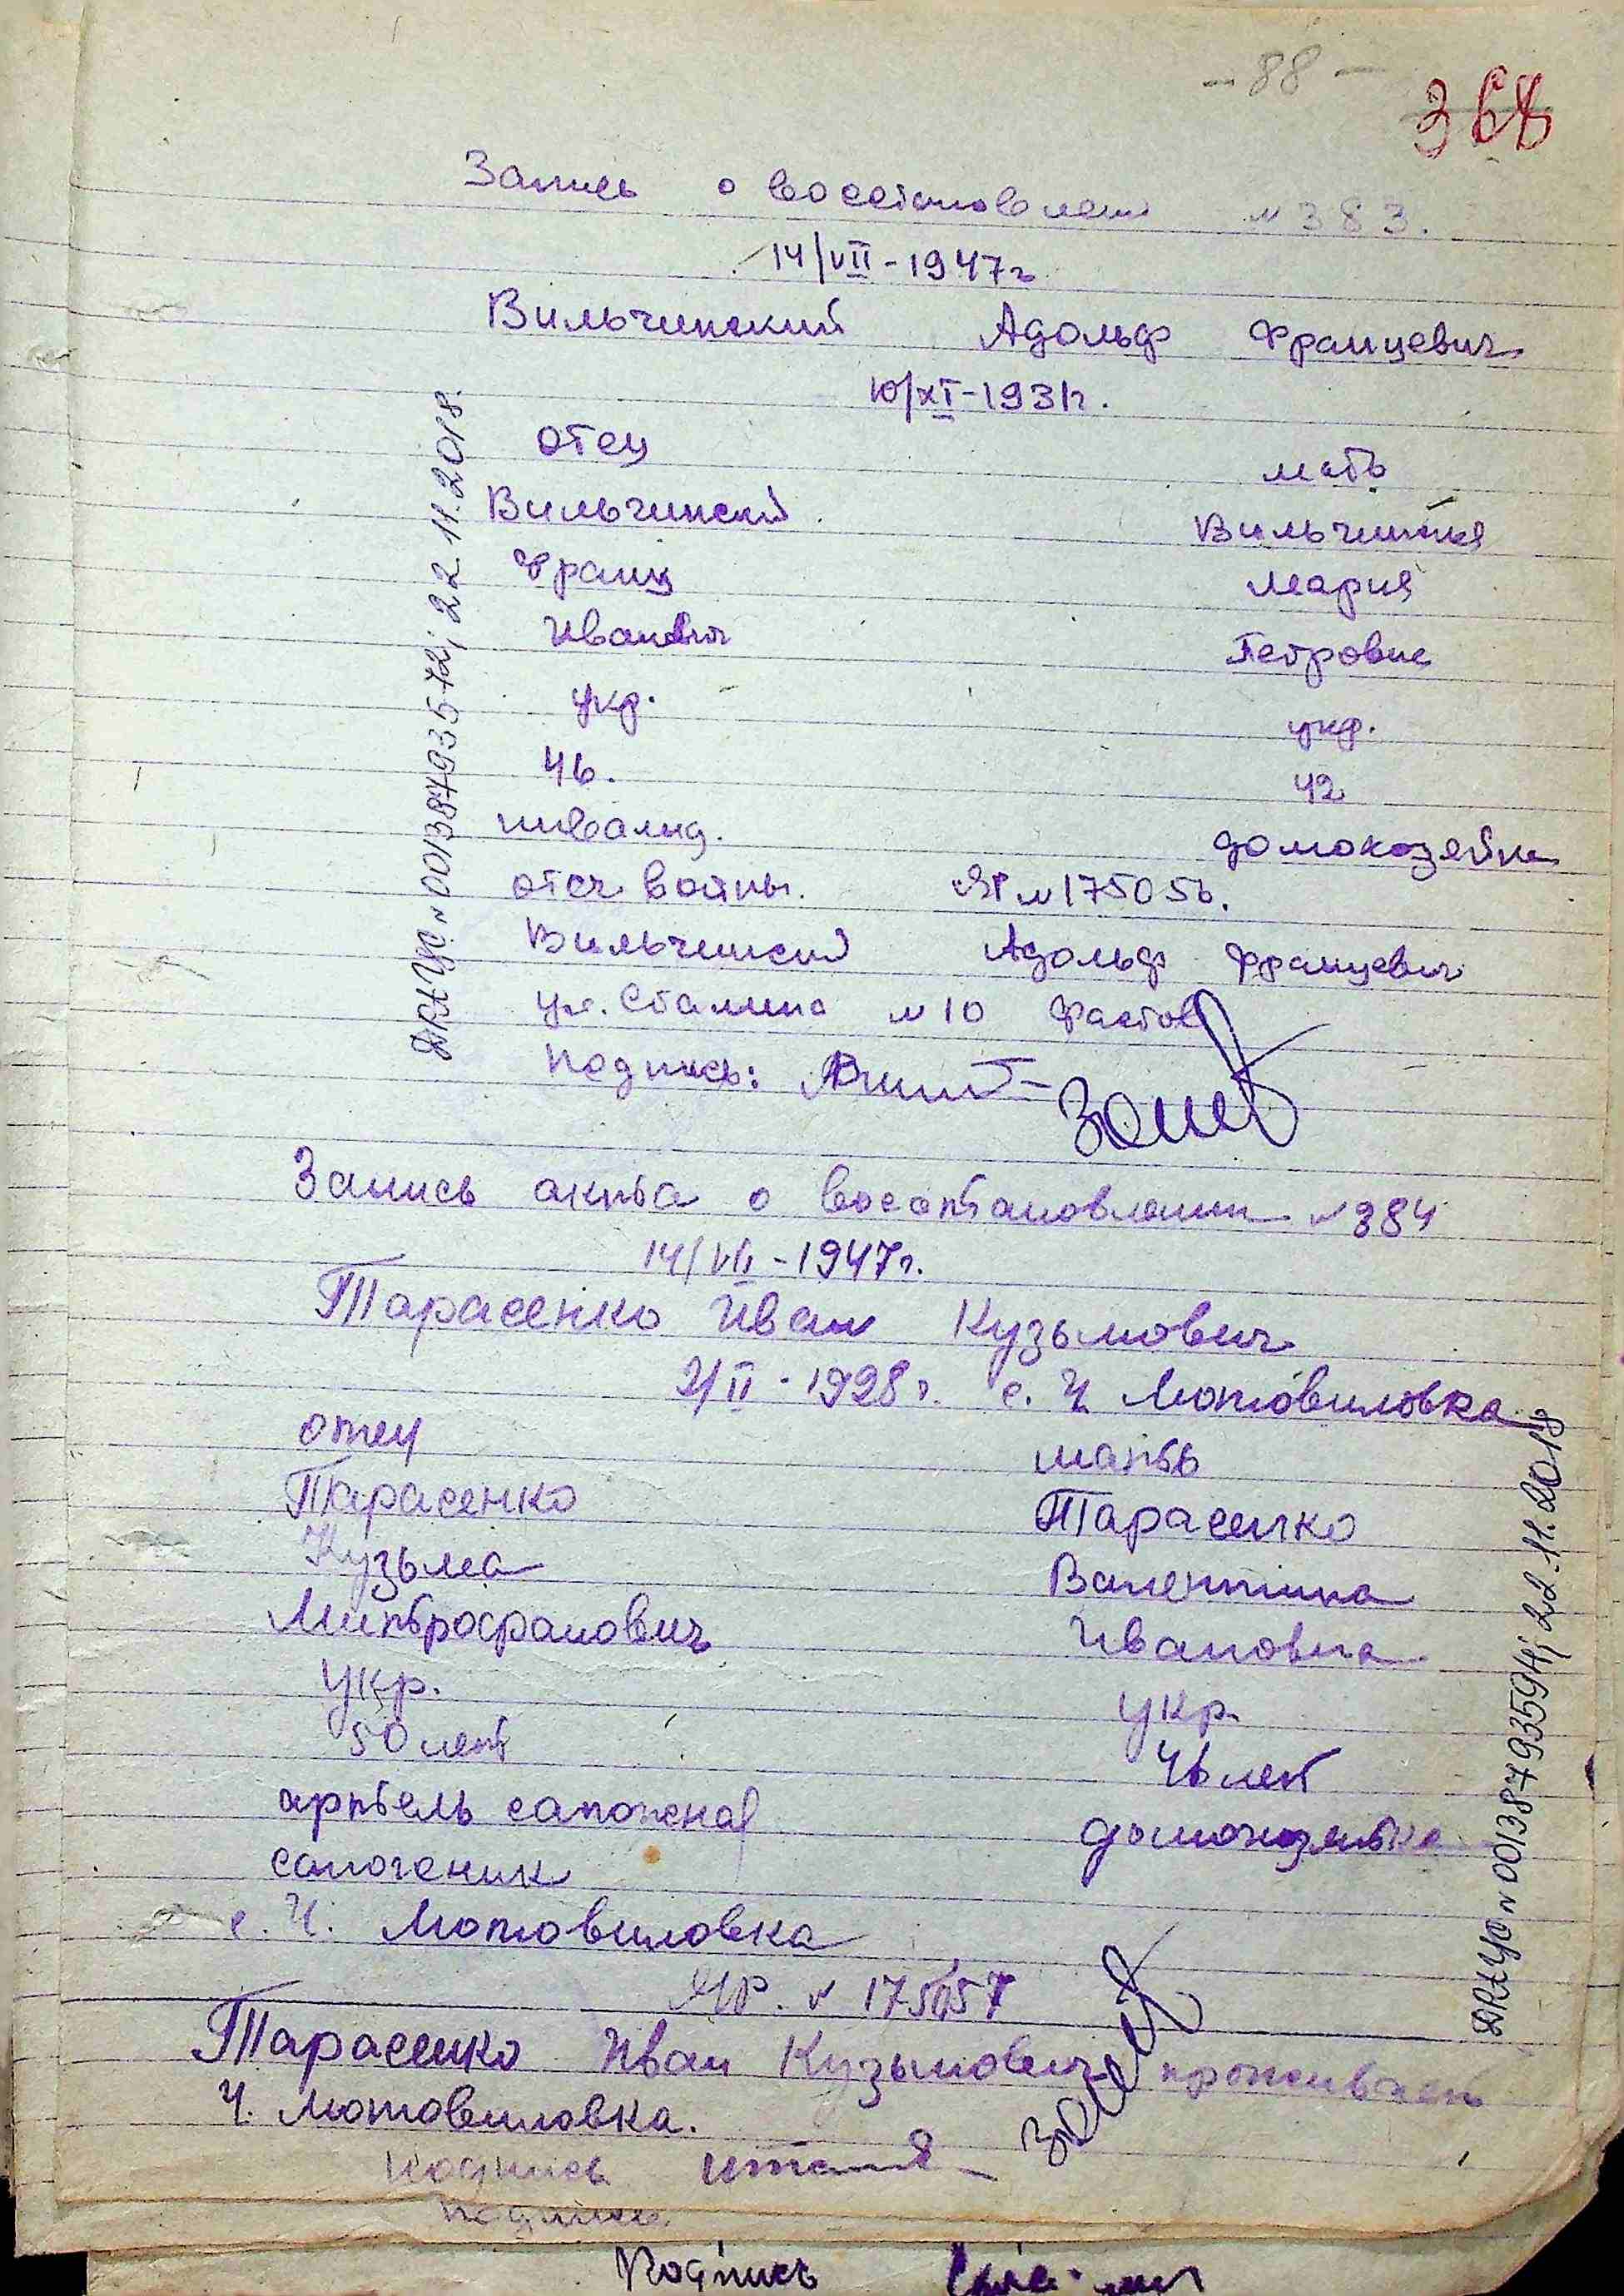 - 88 -
368
Запись о восстановлении № 383.
14/VII - 1947г
Вильчинский Адольф Францевич
10/XI - 1931г.
отец мать
Вильчинский Вильчинская
Франц Мария
Иванович Петровна
укр. укр.
46. 42
инвалид. домохозяйка
отеч войны. № 175056.
Вильчинский Адольф Францевич
ул. Сталина № 10 Фастов
Подпись:
ДРАЦС № 00138793572; 22.11.2018.
Запись акта о восстановлении № 384
14/VII - 1947г.
Тарасенко Иван Кузьмович
2/II - 1928г. с. Ч Мотовиловка
отец мать
Тарасенко Тарасенко
Кузьма Валентина
Митрофанович Ивановна
укр. укр.
50 лет 46 лет
артель сапожная домохозяйка
сапожник
с. Ч. Мотовиловка
№ 175057
Тарасенко Иван Кузьмович проживает
Ч. Мотовиловка.
Подпись
ДРАЦС № 00138793594; 22.11.2018
Подпись
Подпись